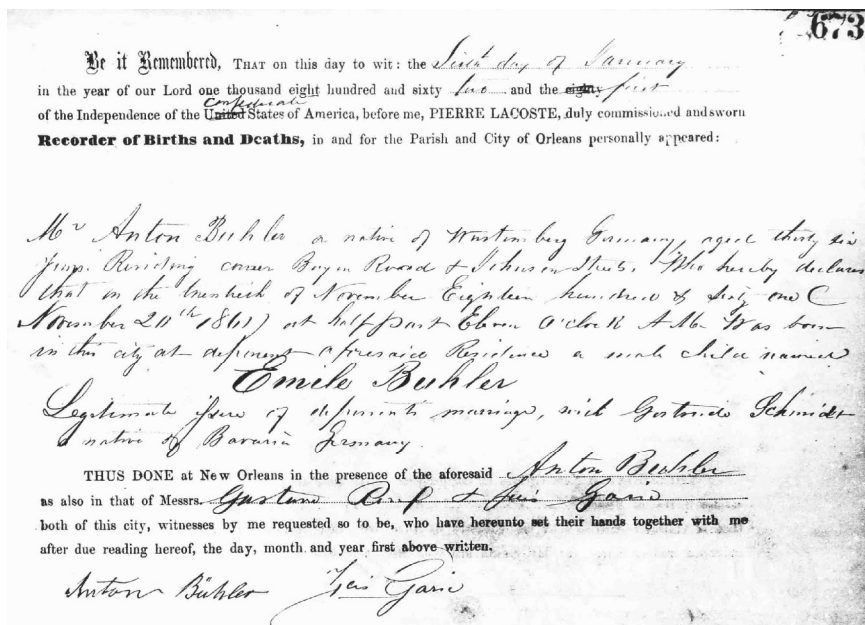 673
Be it Remembered, THAT on this day to wit: the Sixth day of January
in the year of our Lord one thousand eight hundred and sixty two and the eighty first
confederate
of the Independence of the United States of America, before me, PIERRE LACOSTE, duly commissioned and sworn
Recorder of Births and Deaths, in and for the Parish and City of Orleans personally appeared:
Mr Anton Buhler a native of Wurtemberg Germany, aged thirty six
years. Residing corner Bayou Road & Johnson Streets, Who hereby declares
that on the twentieth of November Eighteen hundred & sixty one (
November 20th 1861) at half past Eleven O'clock A.M. Was born
in this city at deponent aforesaid Residence a male child named
Emile Buhler
Legitimate issue of deponents marriage, with Gertrude Schmidt
a native of Bavaria Germany.
THUS DONE at New Orleans in the presence of the aforesaid Anton Buhler
as also in that of Messrs. Gustave & Garic
both of this city, witnesses by me requested so to be, who have hereunto set their hands together with me
after due reading hereof, the day, month and year first above written.
Anton Bühler Garic